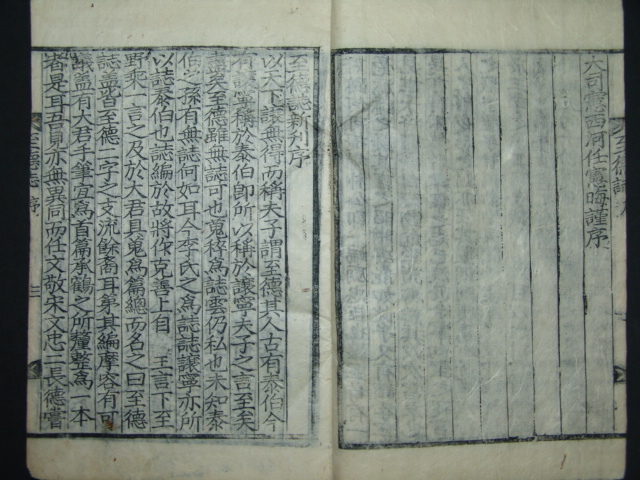 大司憲西河任憲晦謹序
至德誌新刊序
以天下讓無得而稱夫子謂至德其人古有泰伯今
有讓寧稱於泰伯卽所以稱於讓寧夫子之言至矣
盡矣至德雖無誌可也蒐移爲誌雲仍私也未知泰
伯之孫有無誌何如耳今李氏之爲誌誌讓寧亦所
以誌泰伯也誌編於故將仰克善上自 王言下至
野乘一言之及於大君具蒐爲篇總而名之曰至德
誌盖皆至德二字之支流餘裔耳弟其編摩容有可
議盖有大君手筆宜爲首篇承鶴之所釐整爲一本
者是耳吾見亦無異同而任文敬宋文忠二長德嘗
至德誌 序 二